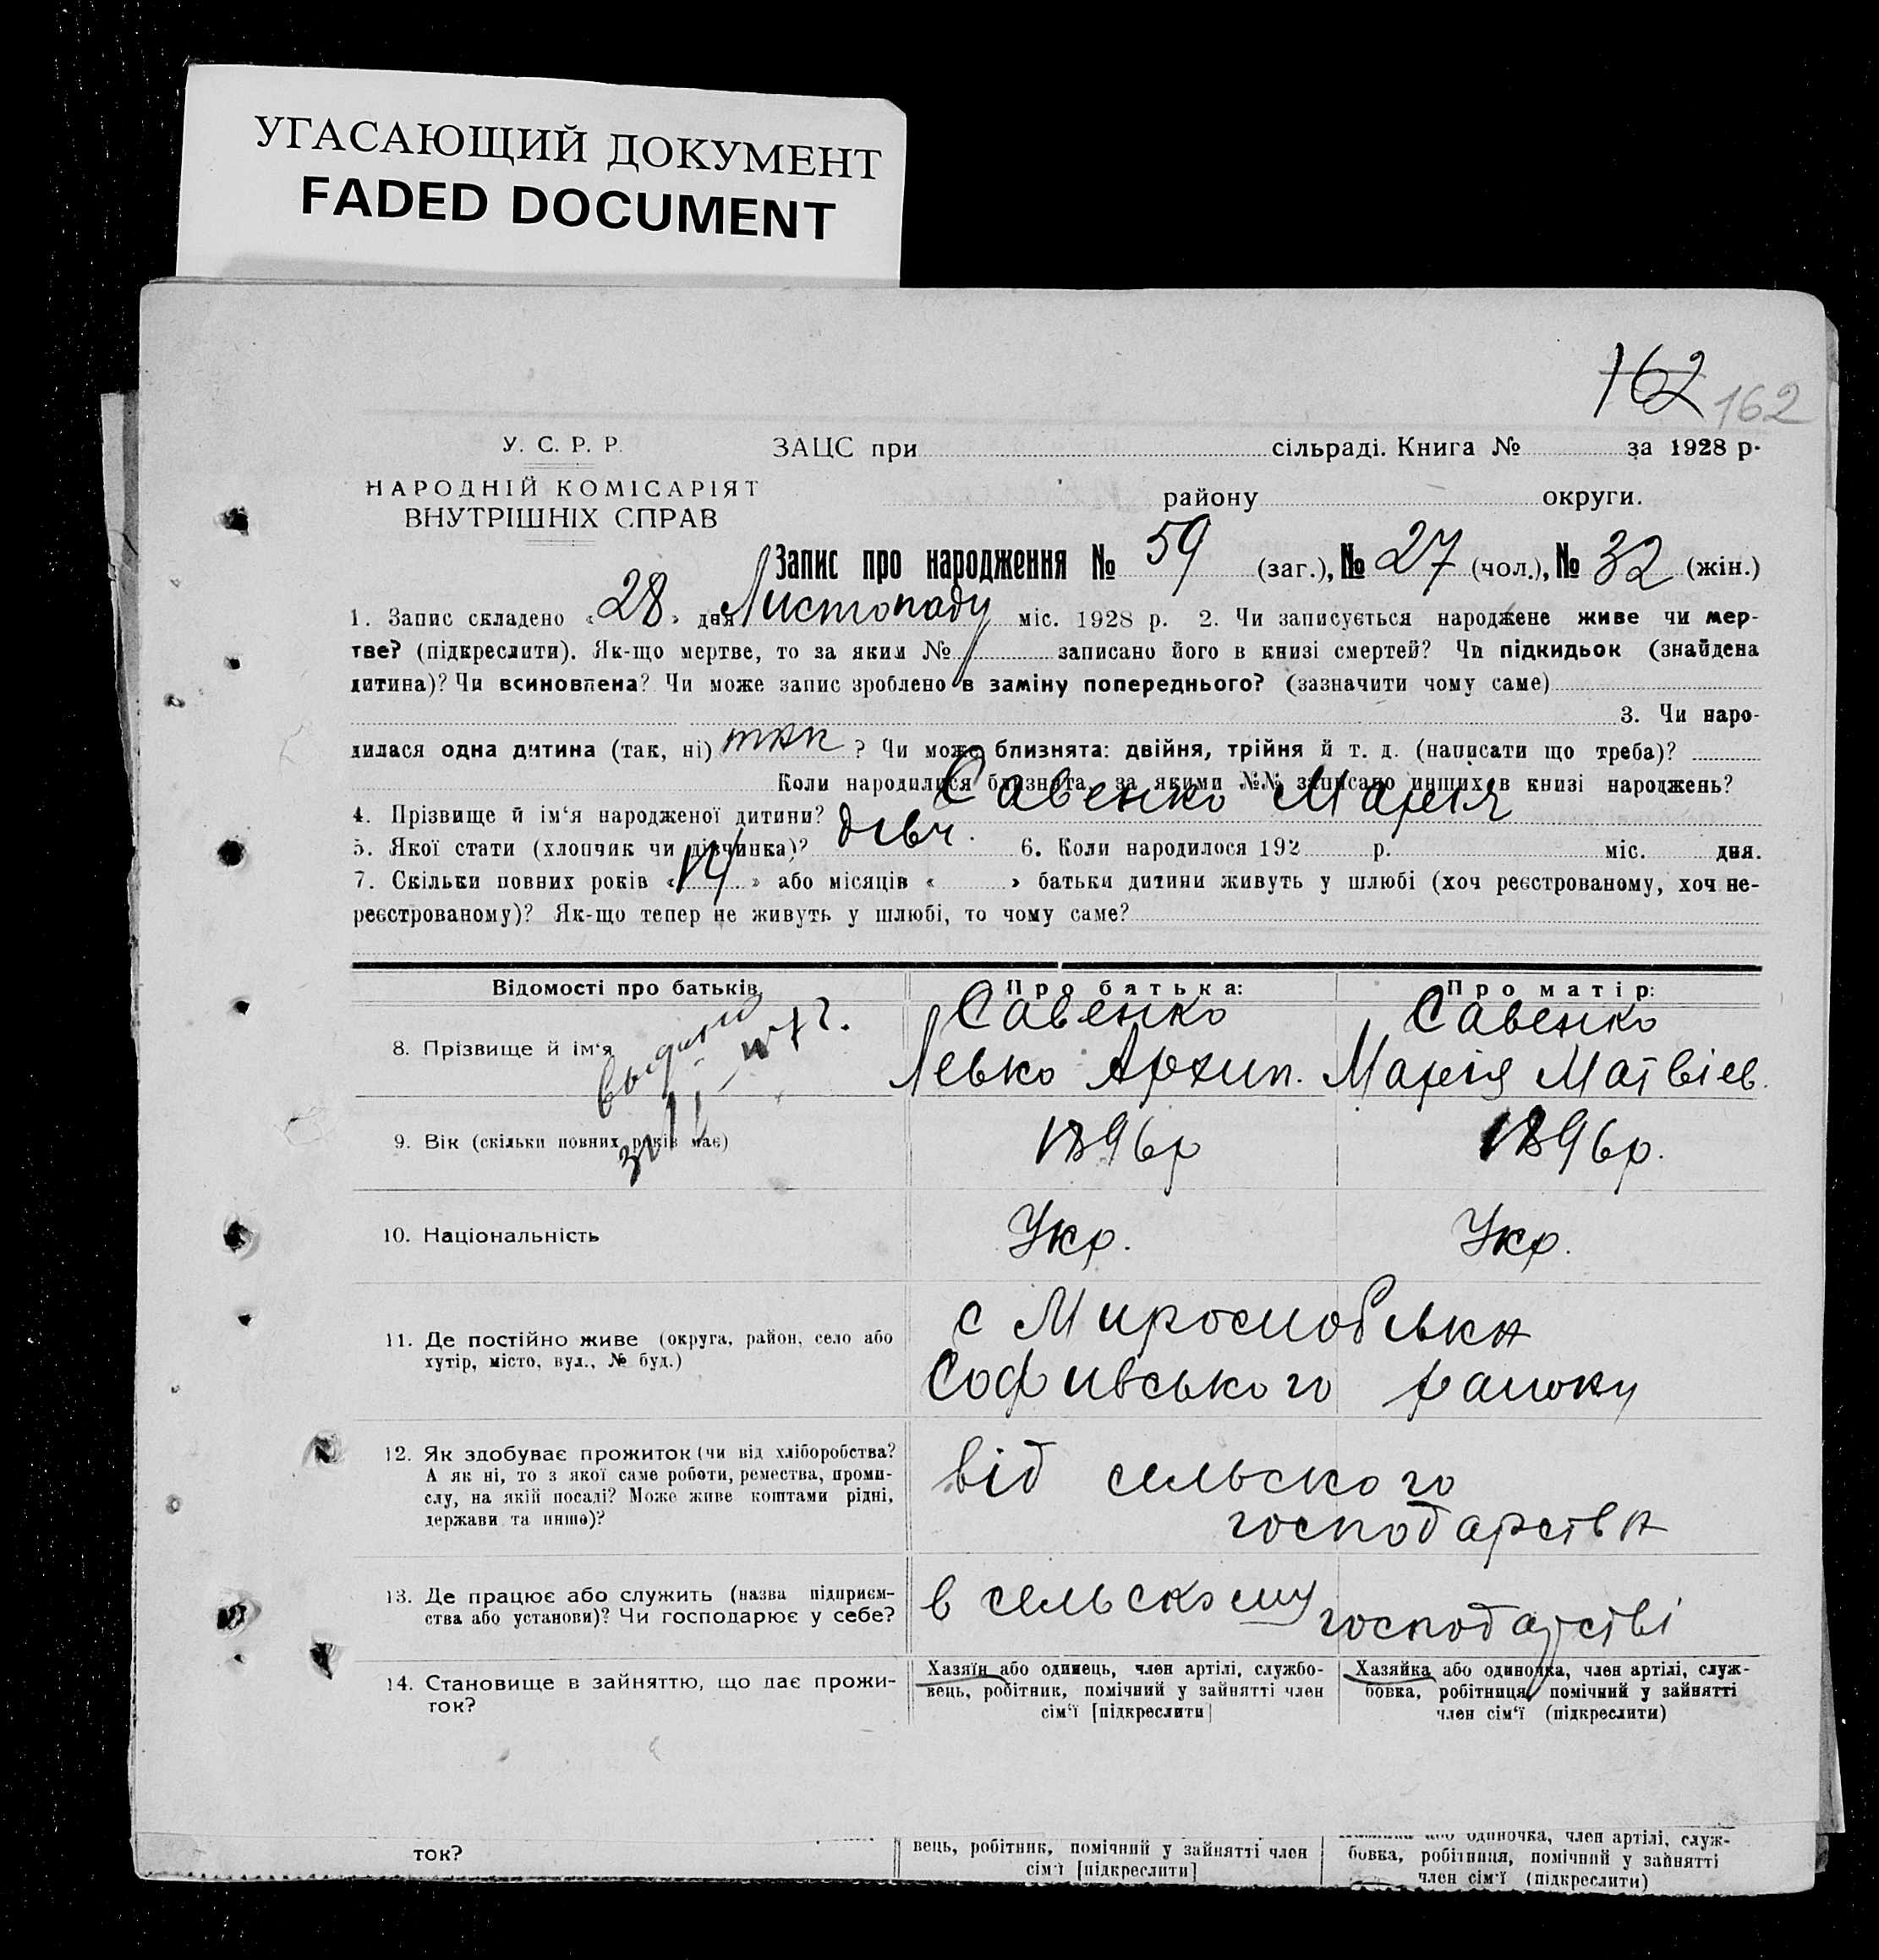 УГАСАЮЩИЙ ДОКУМЕНТ
FADED DOCUMENT
162 162
У. С. Р. Р.
НАРОДНІЙ КОМІСАРІЯТ
ВНУТРІШНІХ СПРАВ
ЗАЦС при сільраді. Книга № за 1928 р.
району округи.
Запис про народження № 59 (заг.), № 27 (чол.), № 32 (жін.)
1. Запис складено «28» дня Листопаду міс. 1928 р. 2. Чи записується народжене живе чи мер-
тве? (підкреслити). Як-що мертве, то за яким № записано його в книзі смертей? Чи підкидьок (знайдена
дитина)? Чи всиновлена? Чи може запис зроблено в заміну попереднього? (зазначити чому саме)
3. Чи наро-
дилася одна дитина (так, ні) так ? Чи може близнята: двійня, трійня й т. д. (написати що треба)?
Коли народилися близнята, за якими №№ записано инших в книзі народжень?
4. Прізвище й ім‘я народженої дитини? Савенко Марія
5. Якої стати (хлопчик чи дівчинка)? дівч. 6. Коли народилося 192 р. міс. дня.
7. Скільки повних років «14» або місяців « » батьки дитини живуть у шлюбі (хоч реєстрованому, хоч не-
реєстрованому)? Як-що тепер не живуть у шлюбі, то чому саме?
Відомості про батьків Про батька: Про матір:
8. Прізвище й ім‘я
Савенко
Левко Архип.
Савенко
Марія Матвіев.
9. Вік (скільки повних років має)
1896р
1896р.
10. Національність
Укр.
Укр.
11. Де постійно живе (округа, район, село або
хутір, місто, вул., № буд.)
с Миролюбівка
Софиівського району
12. Як здобуває прожиток (чи від хліборобства?
А як ні, то з якої саме роботи, ремества, проми-
слу, на якій посаді? Може живе коштами рідні,
держави та инше)?
від сельского
господарства
13. Де працює або служить (назва підприєм-
ства або установи)? Чи господарює у себе?
в сельскому господарстві
14. Становище в зайняттю, що дає прожи-
ток?
Хазяїн або одинець, член артілі, службо-
вець, робітник, помічний у зайнятті член
сім‘ї [підкреслити]
Хазяйка або одиночка, член артілі, служ-
бовка, робітниця, помічний у зайнятті
член сім‘ї (підкреслити)
ток?
вець, робітник, помічний у зайнятті член
сім‘ї [підкреслити]
або одиночка, член артілі, служ-
бовка, робітниця, помічний у зайнятті
член сім‘ї (підкреслити)